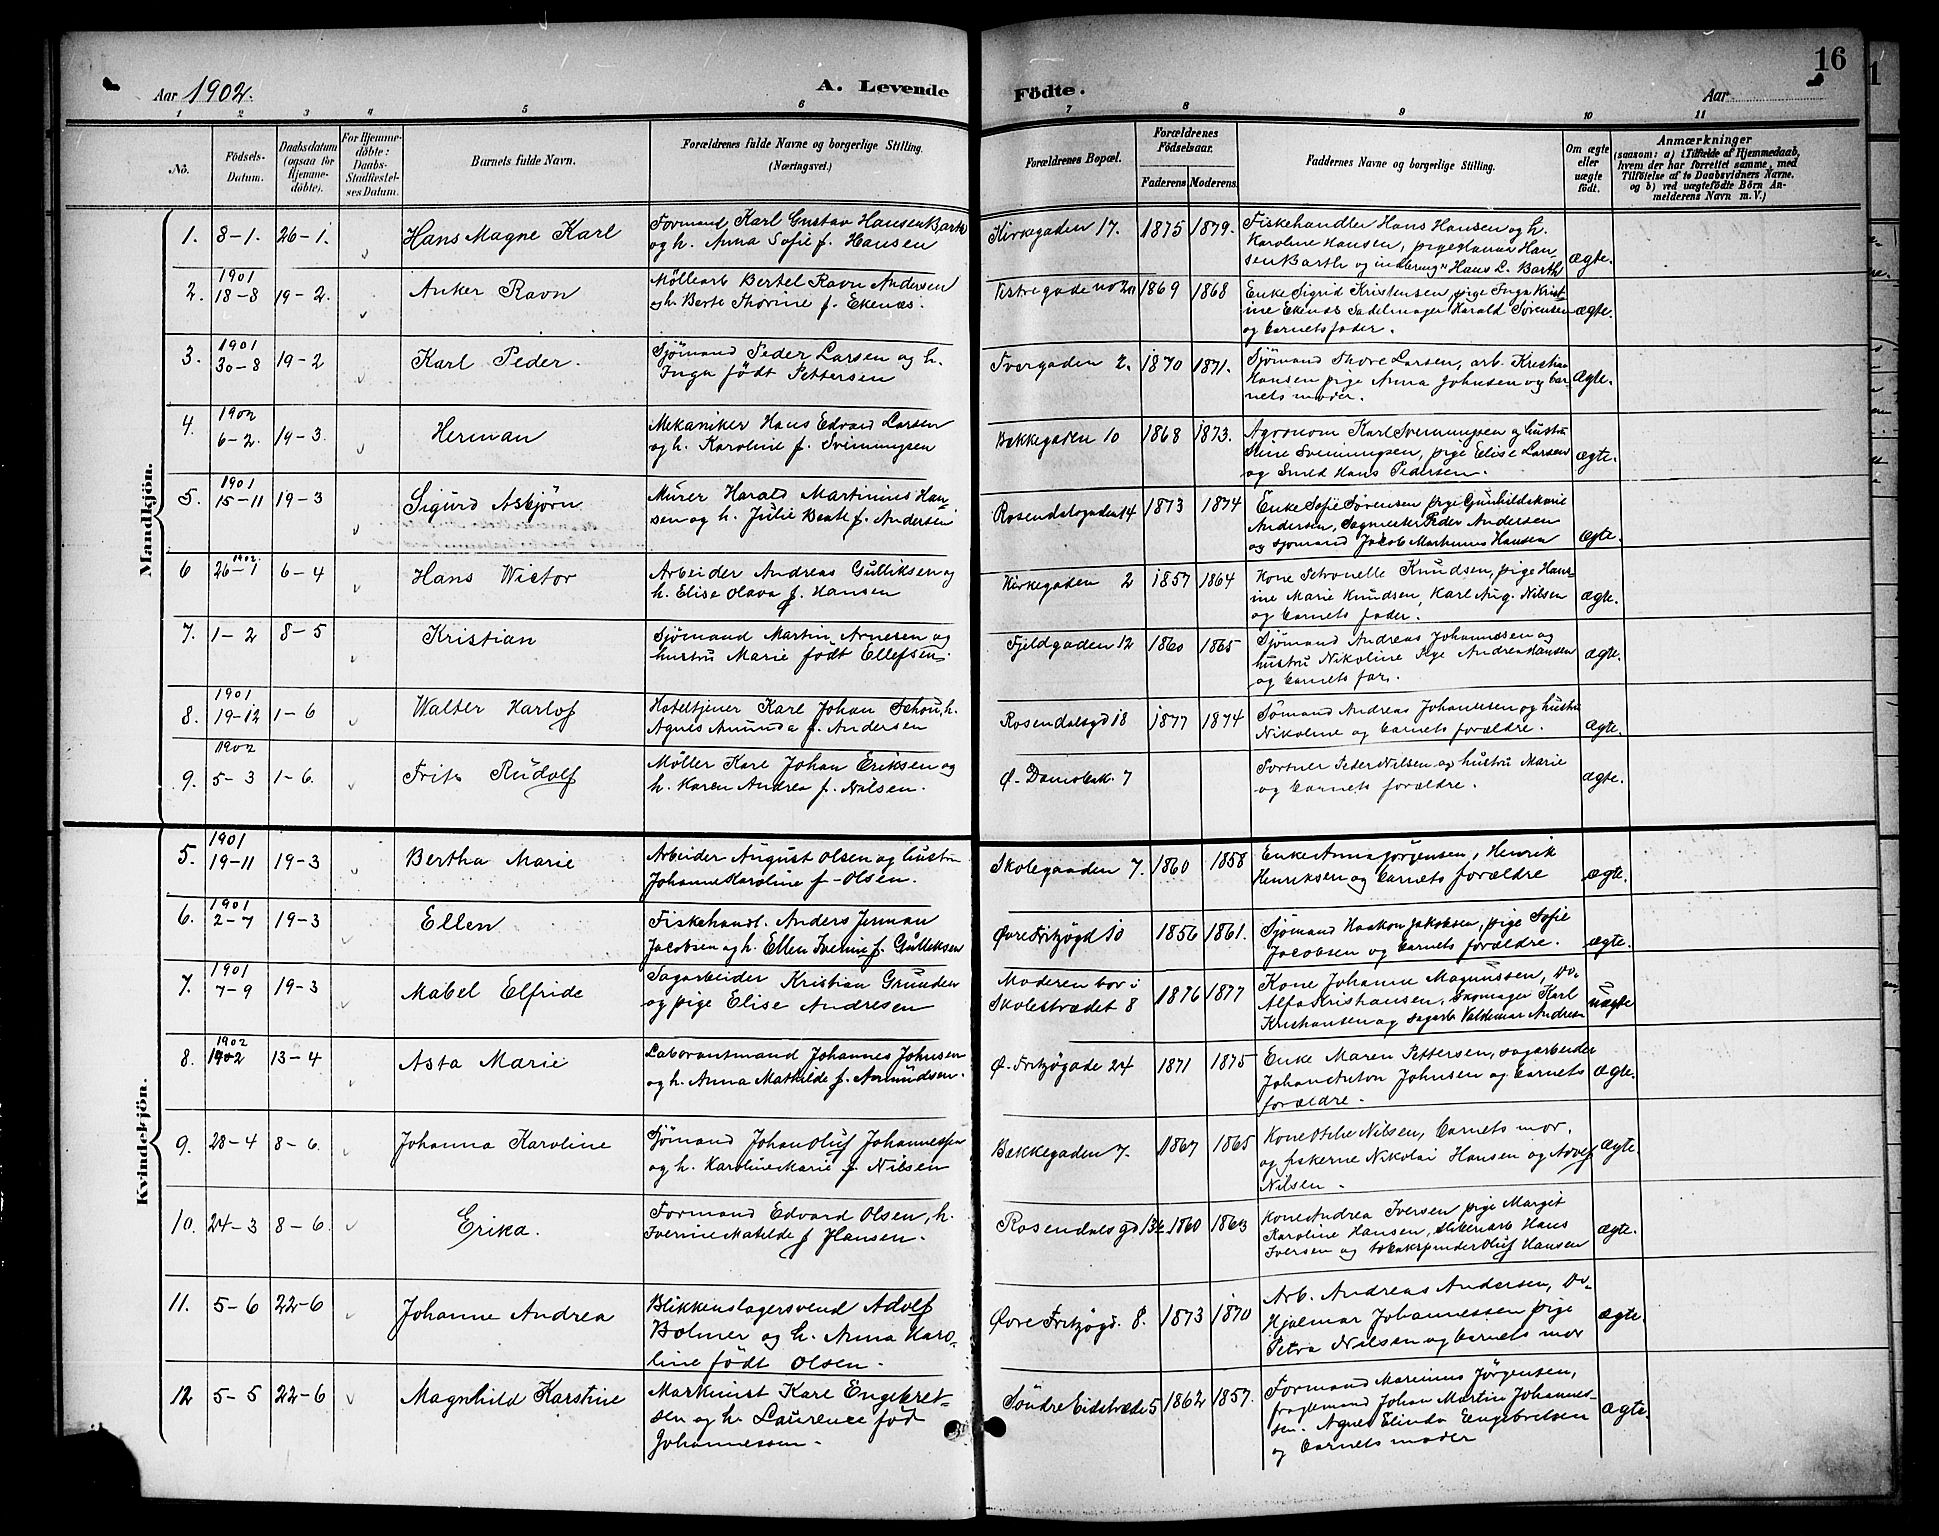 16
Aar 1902.
A. Levende Födte.
Aar
1 2 3 4 5 6 7 8 9 10 11
No.
Födsels-Datum.
Daabsdatum (ogsaa for Hjemme-döbte).
For Hjemme-döbte: Daabs-Stadfæstel-ses Datum.
Barnets fulde Navn.
Forældrenes fulde Navne og borgerlige Stilling.
(Næringsvei.)
Forældrenes Bopæl.
Forældrenes Födselsaar.
Faderens Moderens.
Faddernes Navne og borgerlige Stilling.
Om ægte eller uægte födt.
Anmærkninger
(saasom: a) i Tilfælde af Hjemmedaab,
hvem der har forrettet samme, med
Tilföielse af to Daabsvidners Navne,
og b) ved uægtefödte Börn An-
melderens Navn m. V.)
Mandkjön.
1. 8-1. 26-1. Hans Magne Karl
Formand Karl Gustav Hansen Barth
og h. Anna Sofie f. Hansen
Kirkegaden 17. 1875 1879.
Fiskehandler Hans Hansen og h.
Karoline Hansen, pige Hanna Han
sen Barth og Hans L. Barth
ægte.
2. 1901 18-8 19-2. Anker Ravn
Möllearb Bertel Ravn Andersen
og h. Berte Thorine f. Ekenæs.
1869 1868
Enke Sigrid Kristensen, pige Inga Krist
ine Ekenæs Sadelmager Harald Sörensen
og barnets fader.
ægte.
3. 1901 30-8 19-2 Karl Peder.
Sjömand Peder Larsen og h.
Inga födt Pettersen
Tvergaden 2. 1870 1871.
Sjömand Thore Larsen, arb. Kristian
Hansen pige Anna Johnsen og bar-
nets moder.
Ægte.
4. 1902 6-2. 19-3. Herman
Mekaniker Hans Edvard Larsen
og h. Karoline f. Svenningsen
Bakkegaden 10 1868 1873.
Agronom Karl Svenningsen og hustru
Svenningsen, pige Elise Larsen
og Smed Hans Pedersen.
ægte.
5. 1901 15-11 19-3 Sigurd Asbjörn
Murer Harald Martinius Han-
sen og h. Julie Beate f. Andersen
Rosendalsgaden 14 1873 1874
Enke Sofie Sörensen pige Gunhild
Andersen, Sagmester Peder Andersen
og sjömand Jacob Markinus Hansen
ægte.
6 1902 26-1 6-4 Hans Wictor
Arbeider Andreas Gulliksen og
h. Elise Olava f. Hansen
Kirkegaden 2 1857 1864
Kone Petronelle Knudsen, pige Hans-
ine Marie Knudsen, Karl Aug. Nilsen
og barnets fader.
ægte.
7. 1-2 8-5 Kristian
Sjömand Martin Arnesen og
hustru Marie födt Ellefsen.
Fjeldgaden 12 1860 1865
Sjömand Andreas Johannesen og
hustru Nikoline Pige Andrea Hansen
og barnets far.
ægte.
8. 1901 19-12 1-6 Walter Harlof
Hoteltjener Karl Johan Schou, h.
Agnes Amunda f. Andersen
Rosendalsgd 18 1877 1874
Sömand Andreas Johannesen og hustru
Nikoline og barnets forældre.
ægte.
9. 1902 5-3 1-6. Frits Rudolf
Möller Karl Johan Eriksen og
h. Karen Andrea f. Nilsen.
Ø. Damsbak. 7
Portner Peder Nilsen og hustru Marie
og barnets forældre.
ægte.
Kvindekjön.
5. 1901 19-11 19-3 Bertha Marie
Arbeider August Olsen og hustru
Johanne Karoline f. Olsen.
Skolegaaden 7. 1860 1858
Enke Anna Jörgensen, Henrik
Henriksen og barnets forældre
ægte.
6. 1901 2-7 19-3 Ellen
Fiskehandl. Anders Jerman
Jacobsen og h. Ellen f. Gulliksen
Øvre Fritzögd 10 1856 1861.
Sjömand Haakon Jakobsen, pige Sofie
Jacobsen og barnets forældre.
ægte.
7. 1901 7-9 19-3 Mabel Elfride
Sagarbeider Kristian Grunden
og pige Elise Andresen
Moderen bor i
Skolestrædet 8 1876 1877
Kone Johanne Magnussen, Do-
Alfa Kristiansen, Skomager Karl
Kristiansen og sagarb Valdemar Andresen
uægte
8. 1902 1902 13-4 Asta Marie
Laborantmand Johannes Johnsen
og h. Anna Mathilde f. Amundsen.
Ø. Fritzögade 24 1871 1875
Enke Maren Pettersen, sagarbeider
Johan Anton Johnsen og barnets
forældre.
ægte.
9. 23-4 8-6. Johanna Karoline
Sjömand Johan Oluf Johannessen
og h. Karoline Marie f. Nilsen
Bakkegaden 7. 1867 1865
Kone Nilsen, barnets mor.
og fiskerne Nikolai Hansen og
Nilsen.
ægte.
10. 24-3 8-6. Erika.
Formand Edvard Olsen, h.
Iverine Matilde f Hansen.
Rosendalsgd 1860 1863
Kone Andrea Iversen pige Margit
Karoline Hansen, Hans
Iversen og tobakspinder Oluf Hansen
ægte.
11. 5-6 22-6 Johanne Andrea
Blikkenslagersvend Adolf
Bolmer og h. Anna Karo-
line födt Olsen.
Øvre Fritzögd. 8. 1873 1870
Arb. Andreas Andersen, Do-
Hjalmar Johannessen pige
Petra Nilsen og barnets mor
ægte.
12 5-5 22-6 Magnhild Karstine
Maskinist Karl Engebret-
sen og h. Laurence föd
Johannessen.
Söndre Eidstræde 5 1862 1857.
Formand Marinius Jörgensen,
fragtemand Johan Martin Johannes-
sen. Agnes Elinda Engebretsen
og barnets moder
ægte.